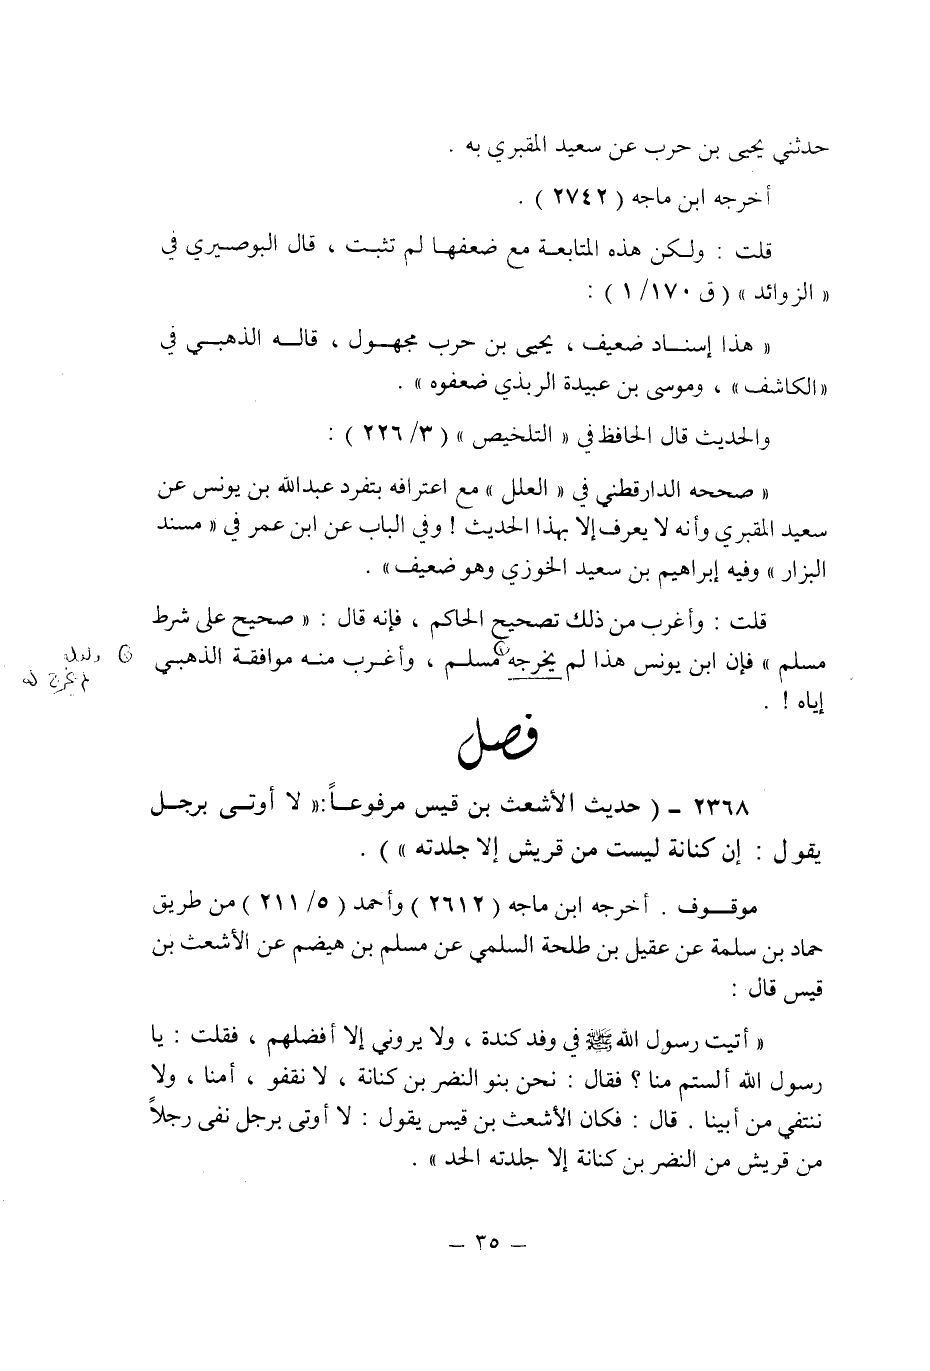 حدثني يحيى بن حرب عن سعيد المقبري به .
أخرجه ابن ماجه ( ٢٧٤٢ ) .
قلت : ولكن هذه المتابعة مع ضعفها لم تثبت ، قال البوصيري في
« الزوائد » ( ق ١٧٠/ ١ ) :
« هذا إسناد ضعيف ، يحيى بن حرب مجهول ، قاله الذهبي في
«الكاشف» ، وموسى بن عبيدة الربذي ضعفوه » .
والحديث قال الحافظ في « التلخيص » ( ٣/ ٢٢٦ ) :
« صححه الدارقطني في « العلل » مع اعترافه بتفرد عبدالله بن يونس عن
سعيد المقبري وأنه لا يعرف إلا بهذا الحديث ! وفي الباب عن ابن عمر في « مسند
البزار » وفيه إبراهيم بن سعيد الخوزي وهو ضعيف» .
قلت : وأغرب من ذلك تصحيح الحاكم ، فإنه قال : « صحيح على شرط
مسلم » فإن ابن يونس هذا لم يخرجه (١) مسلم ، وأغرب منه موافقة الذهبي
إياه ! .
فصل
٢٣٦٨ - ( حديث الأشعث بن قيس مرفوعاً: « لا أوتى برجل
يقول : إن كنانة ليست من قريش إلا جلدته » ) .
موقوف . أخرجه ابن ماجه ( ٢٦١٢ ) وأحمد ( ٥/ ٢١١ ) من طريق
حماد بن سلمة عن عقيل بن طلحة السلمي عن مسلم بن هيضم عن الأشعث بن
قيس قال :
« أتيت رسول الله ﷺ في وفد كندة ، ولا يروني إلا أفضلهم ، فقلت : يا
رسول الله ألستم منا ؟ فقال : نحن بنو النضر بن كنانة ، لا نقفو ، أمنا ، ولا
ننتفي من أبينا . قال : فكان الأشعث بن قيس يقول : لا أوتى برجل نفى رجلاً
من قريش من النضر بن كنانة إلا جلدته الحد » .
— ٣٥ —